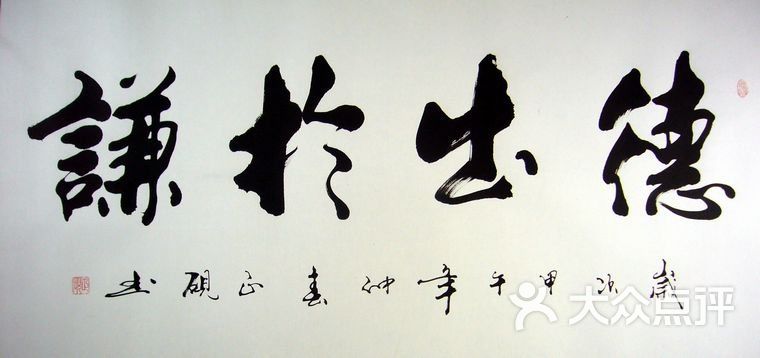 德出於謙
歲次甲午年仲春正硯書
大众点评